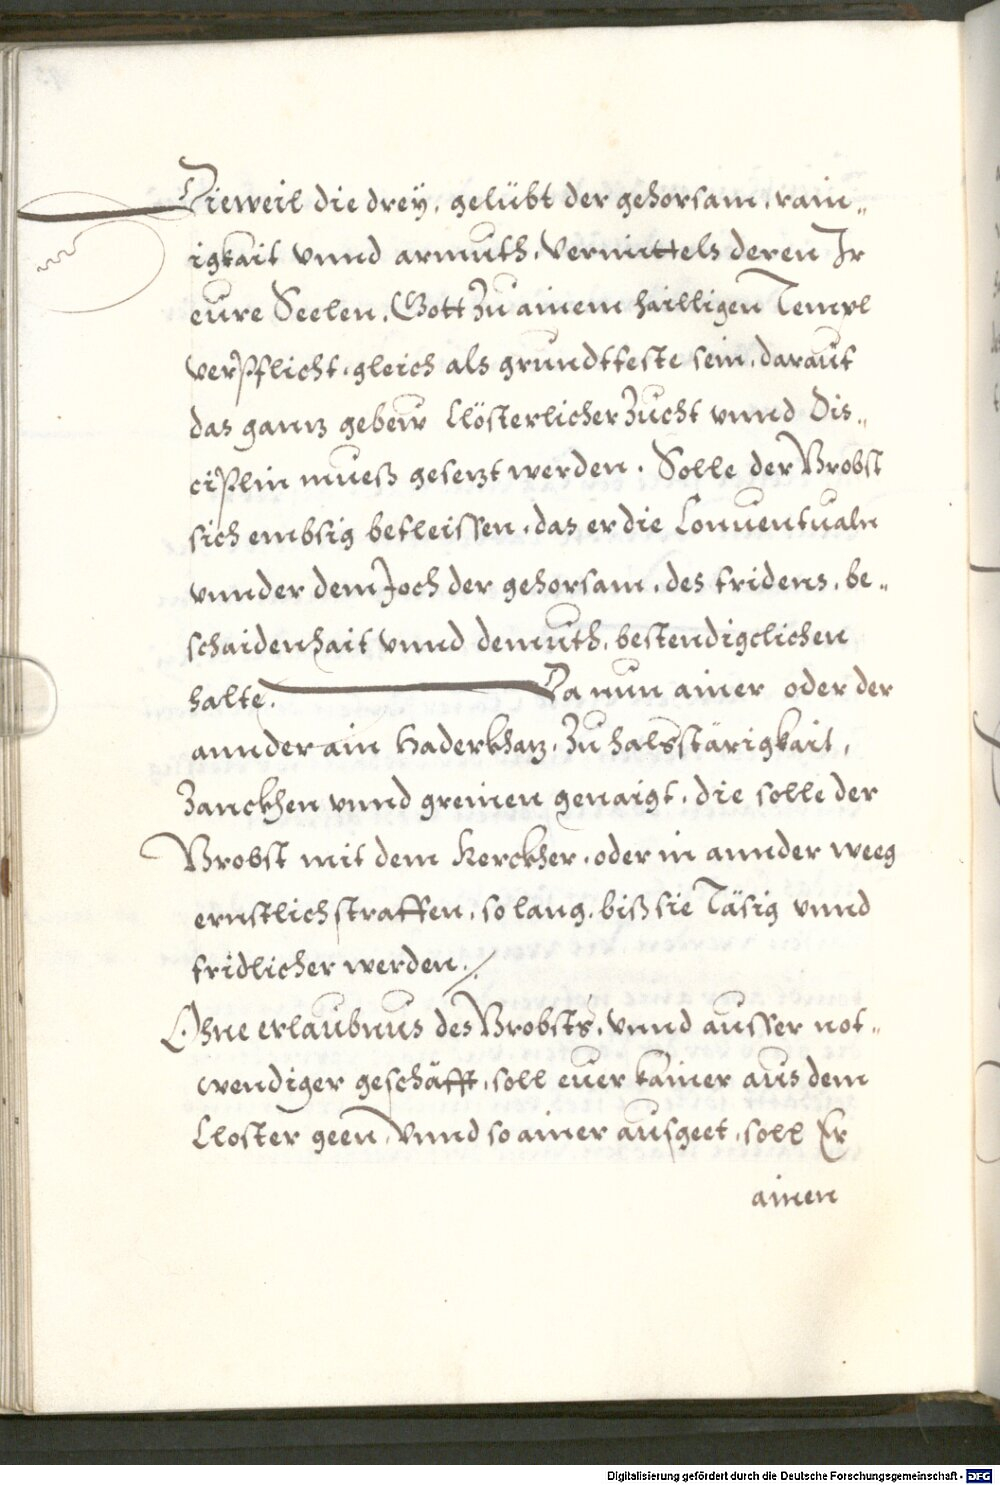 Dieweil die drey, gelübt der gehorsam, rain„
igkait vnnd armuth, Vermittels deren Ir
eure Seelen, Gott Zu ainem hailligen Templ
verpflicht, gleich als grundtfeste sein, darauf
das gantz gebeuv Clösterlicher Zucht vnnd Dis„
ciplin muesß gesetzt werden. Solle der Brobst
sich embsig befleissen, das er die Conuentualn
vnnder dem Joch der gehorsam, des fridens, be„
schaidenhait vnnd demuth, bestendigclichen
halte. Da nun ainer oder der
annder ain Haderkhatz, Zu halsstärigkait,
Zanckhen vnnd greinen genaigt, die solle der
Brobst mit dem Kerckher, oder in annder weeg
ernstlich straffen, so lang, biß sie Täsig vnnd
fridlicher werden./
Ohne erlaubnus des Brobsts, vnnd ausser not„
wendiger geschäfft, soll euer kainer aus dem
Closter geen, Vnnd so ainer ausgeet, soll Er
ainen
Digitalisierung gefördert durch die Deutsche Forschungsgemeinschaft - DFG